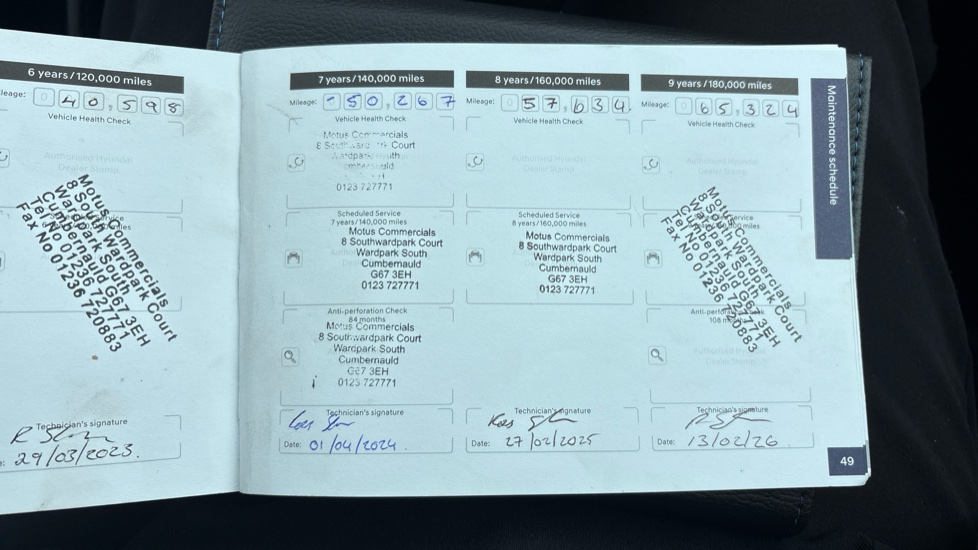 6 years/120,000 miles
leage: 0 40,598
Vehicle Health Check
Authorised Hyundai
Dealer Stamp
Motus Commercials
8 South Wardpark Court
Wardpark South
Cumbernauld G67 3EH
Tel No 01236 727771
Fax No 01236 720883
Technician's signature
29/03/2023.
7 years/140,000 miles
Mileage: - 50,267
Vehicle Health Check
Motus Commercials
Court
0123 727771
Scheduled Service
7 years/140,000 miles
Motus Commercials
8 Southwardpark Court
Wardpark South
Cumbernauld
G67 3EH
0123 727771
Anti-perforation Check
84 months
Motus Commercials
8 Southwardpark Court
Wardpark South
Cumbernauld
G67 3EH
0123 727771
Technician's signature
Date: 01/04/2024
8 years/160,000 miles
Mileage: 0 57,634
Vehicle Health Check
Authorised Hyundai
Dealer Stamp
Scheduled Service
8 years/160,000 miles
Motus Commercials
8 Southwardpark Court
Wardpark South
Cumbernauld
G67 3EH
0123 727771
Technician's signature
Date: 27/02/2025
9 years/180,000 miles
Mileage: 0 65,324
Vehicle Health Check
Authorised Hyundai
Dealer Stamp
Motus Commercials
8 South Wardpark Court
Wardpark South
Cumbernauld G67 3EH
Tel No 01236 727771
Fax No 01236 720883
Authorised Hyundai
Dealer Stamp
Technician's signature
Date: 13/02/26
Maintenance schedule
49